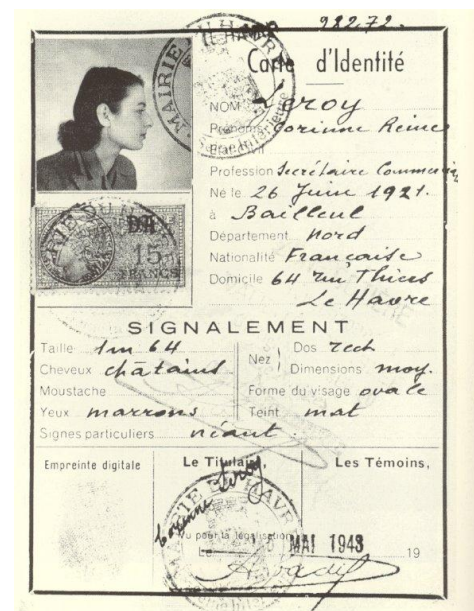 922.72.
Carte d'Identité
NOM Leroy
Prénoms Corinne Reine
Etat Civil
Profession Secrétaire Commerciale
Né le 26 Juin 1921.
à Bailleul
Département Nord
Nationalité Française
Domicile 64 rue Thiers
Le Havre
MAIRIE DU HAVRE
15
FRANCS
SIGNALEMENT
Taille 1m 64
Cheveux châtains
Moustache
Yeux marrons
Signes particuliers néant
Nez
Dos rect
Dimensions moy.
Forme du visage ovale
Teint mat
Empreinte digitale
Le Titulaire,
Corinne Leroy
Les Témoins,
Vu pour la légalisation
MAI 1943
19